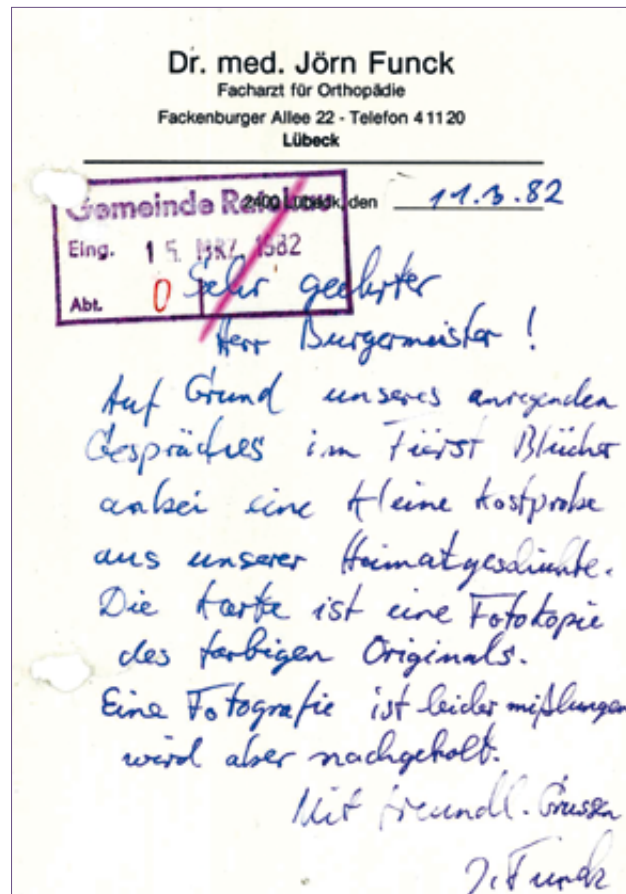 Dr. med. Jörn Funck
Facharzt für Orthopädie
Fackenburger Allee 22 - Telefon 4 11 20
Lübeck
2400 Lübeck, den 11.3.82
Gemeinde Ratekau
Eing. 15. MRZ. 1982
Abt. 0
Sehr geehrter
Herr Burgermeister !
Auf Grund unseres anregenden
Gespräches im Fürst Blücher
anbei eine kleine Kostprobe
aus unserer Heimatgeschichte.
Die Karte ist eine Fotokopie
des farbigen Originals.
Eine Fotografie ist leider mißlungen
wird aber nachgeholt.
Mit freundl. Grussen
J. Funck